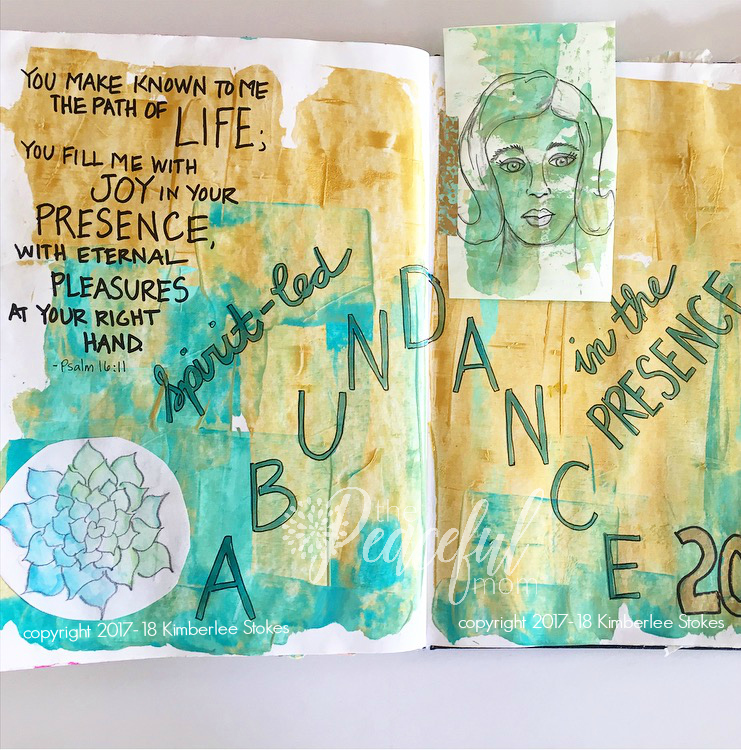 YOU MAKE KNOWN TO ME
THE PATH OF
LIFE;
YOU FILL ME WITH
JOY IN YOUR
PRESENCE,
WITH ETERNAL
PLEASURES
AT YOUR RIGHT
HAND
-Psalm 16:11
spirit-led
ABUNDANCE
in the
PRESENCE
20
the
Peaceful
mom
copyright 2017-18 Kimberlee Stokes
copyright 2017-18 Kimberlee Stokes